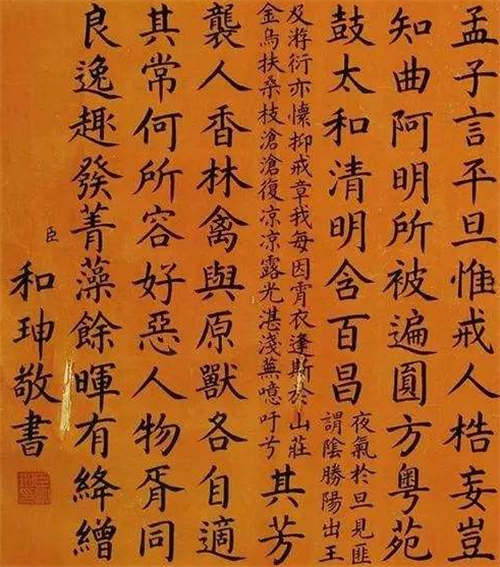 孟子言平旦惟戒人梏妄豈
知曲阿明所被遍圓方粵苑
鼓太和清明含百昌
夜氣於旦見匪
謂陰勝陽出王
及游衍亦懷抑戒章我每因宵衣逢斯於山莊
金烏扶桑枝滄滄復凉凉露光湛淺蕪噫吁兮
其芳
襲人香林禽與原獸各自適
其常何所容好惡人物胥同
良逸趣發菁藻餘暉有絳繒
臣
和珅敬書